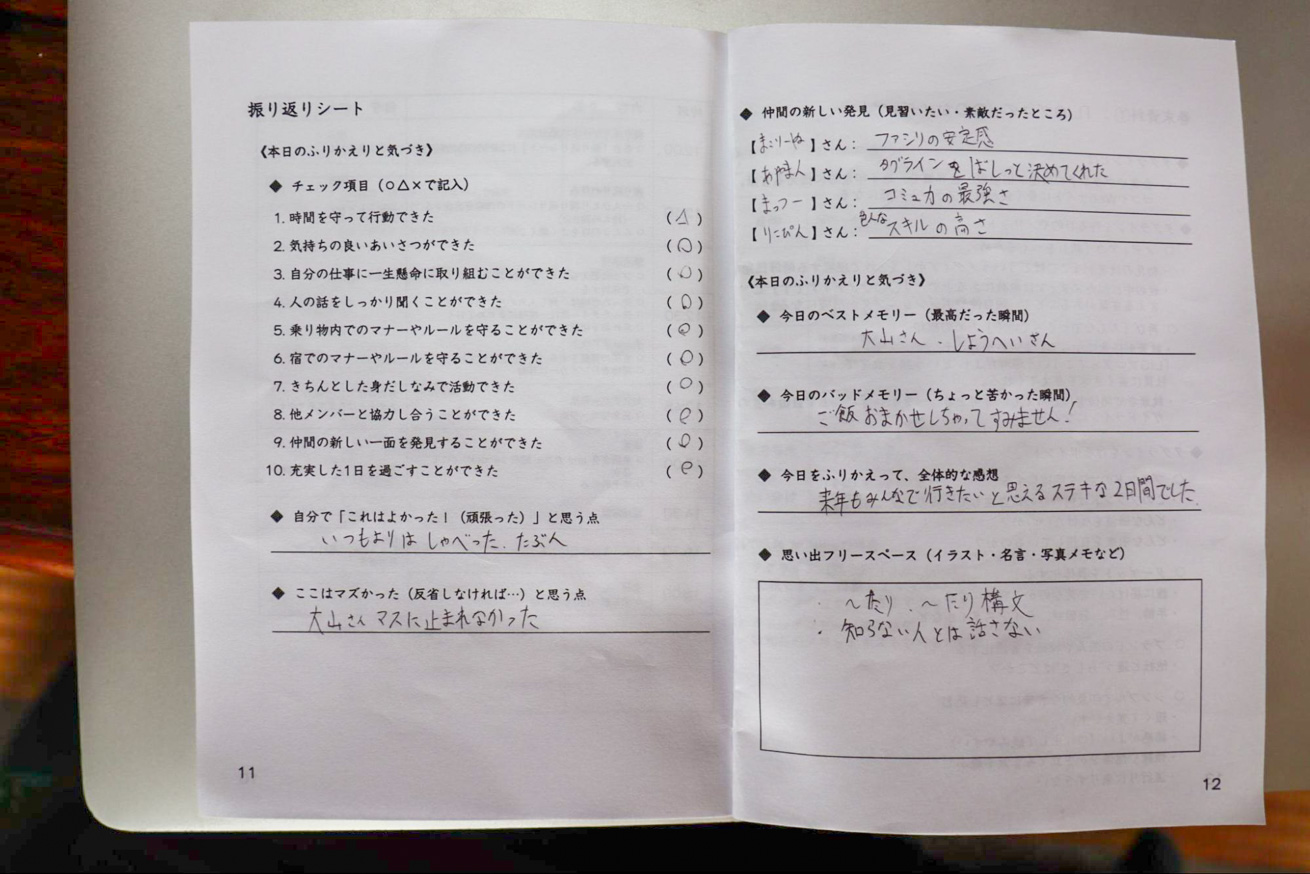 振り返りシート
《本日のふりかえりと気づき》
◆ チェック項目（○△×で記入）
1. 時間を守って行動できた （△）
2. 気持ちの良いあいさつができた （○）
3. 自分の仕事に一生懸命に取り組むことができた （○）
4. 人の話をしっかり聞くことができた （○）
5. 乗り物内でのマナーやルールを守ることができた （○）
6. 宿でのマナーやルールを守ることができた （○）
7. きちんとした身だしなみで活動できた （○）
8. 他メンバーと協力し合うことができた （○）
9. 仲間の新しい一面を発見することができた （○）
10. 充実した1日を過ごすことができた （○）
◆ 自分で「これはよかった！（頑張った）」と思う点
いつもよりは しゃべった、たぶん
◆ ここはマズかった（反省しなければ…）と思う点
大山さん マスに止まれなかった
11
◆ 仲間の新しい発見（見習いたい・素敵だったところ）
【まこりーぬ】さん： ファシリの安定感
【あやまん】さん： タグラインをばしっと決めてくれた
【まっつー】さん： コミュ力の最強さ
【りこぴん】さん： 色んなスキルの高さ
《本日のふりかえりと気づき》
◆ 今日のベストメモリー（最高だった瞬間）
大山さん、しょうへいさん
◆ 今日のバッドメモリー（ちょっと苦かった瞬間）
ご飯おまかせしちゃってすみません！
◆ 今日をふりかえって、全体的な感想
来年もみんなで行きたいと思えるステキな2日間でした。
◆ 思い出フリースペース（イラスト・名言・写真メモなど）
・〜たり、〜たり構文
・知らない人とは話さない
12